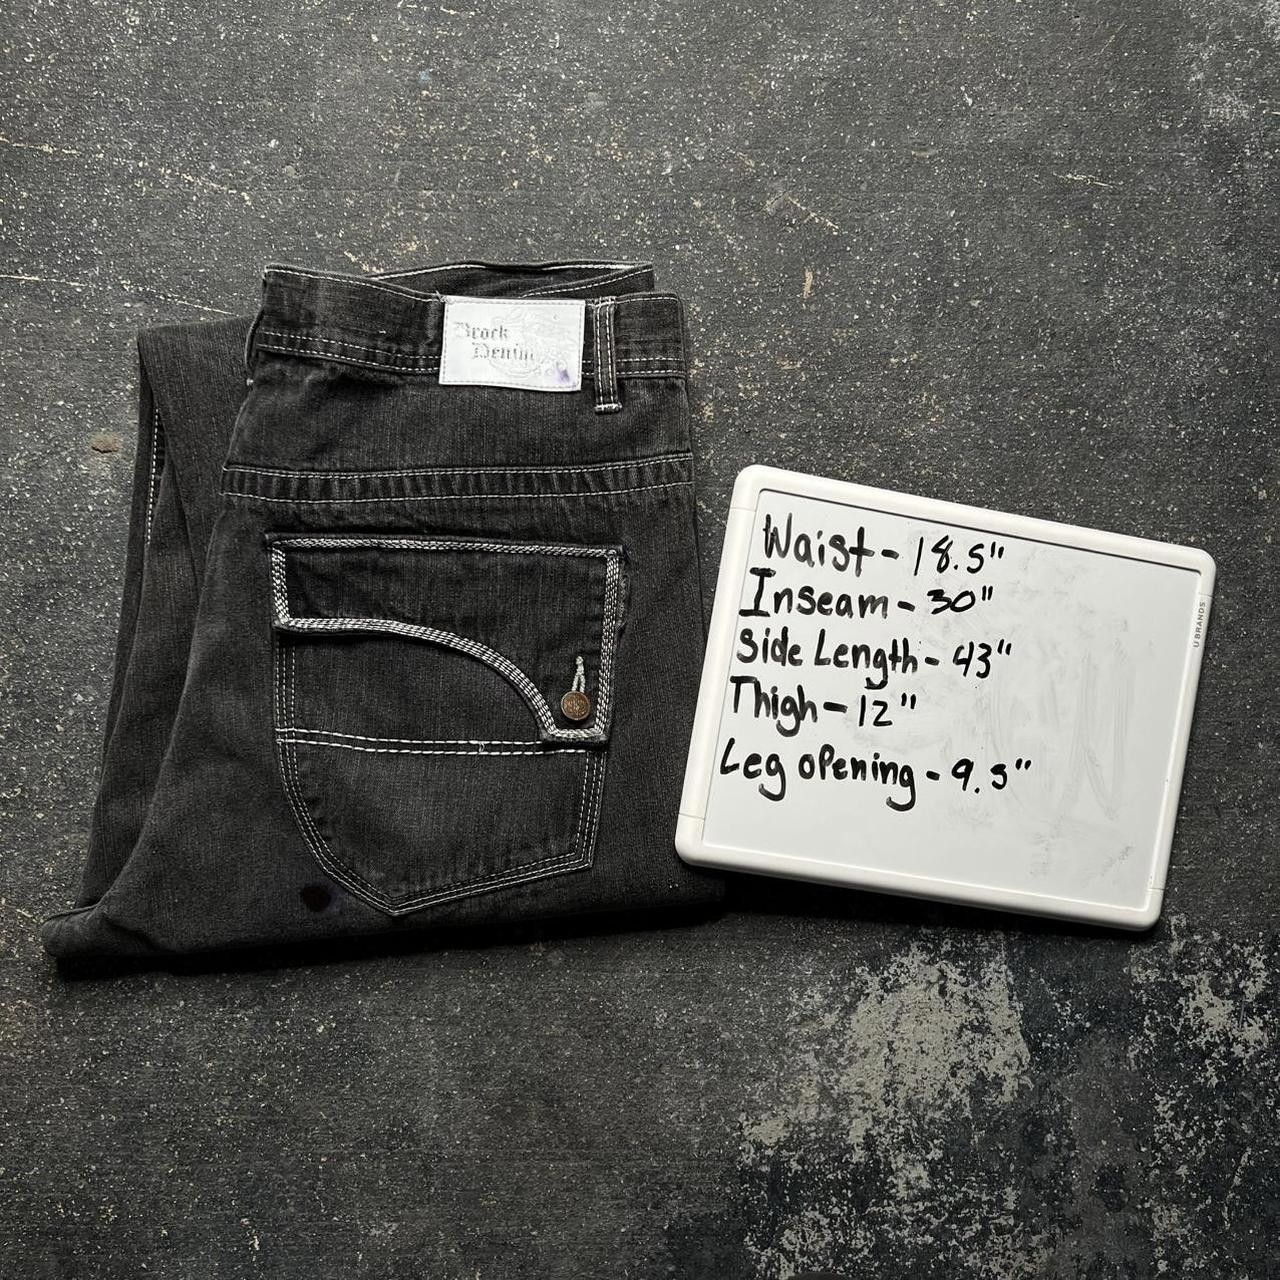 Brock
Denim
Waist - 18.5"
Inseam - 30"
Side Length - 43"
Thigh - 12"
Leg opening - 9.5"
U BRANDS